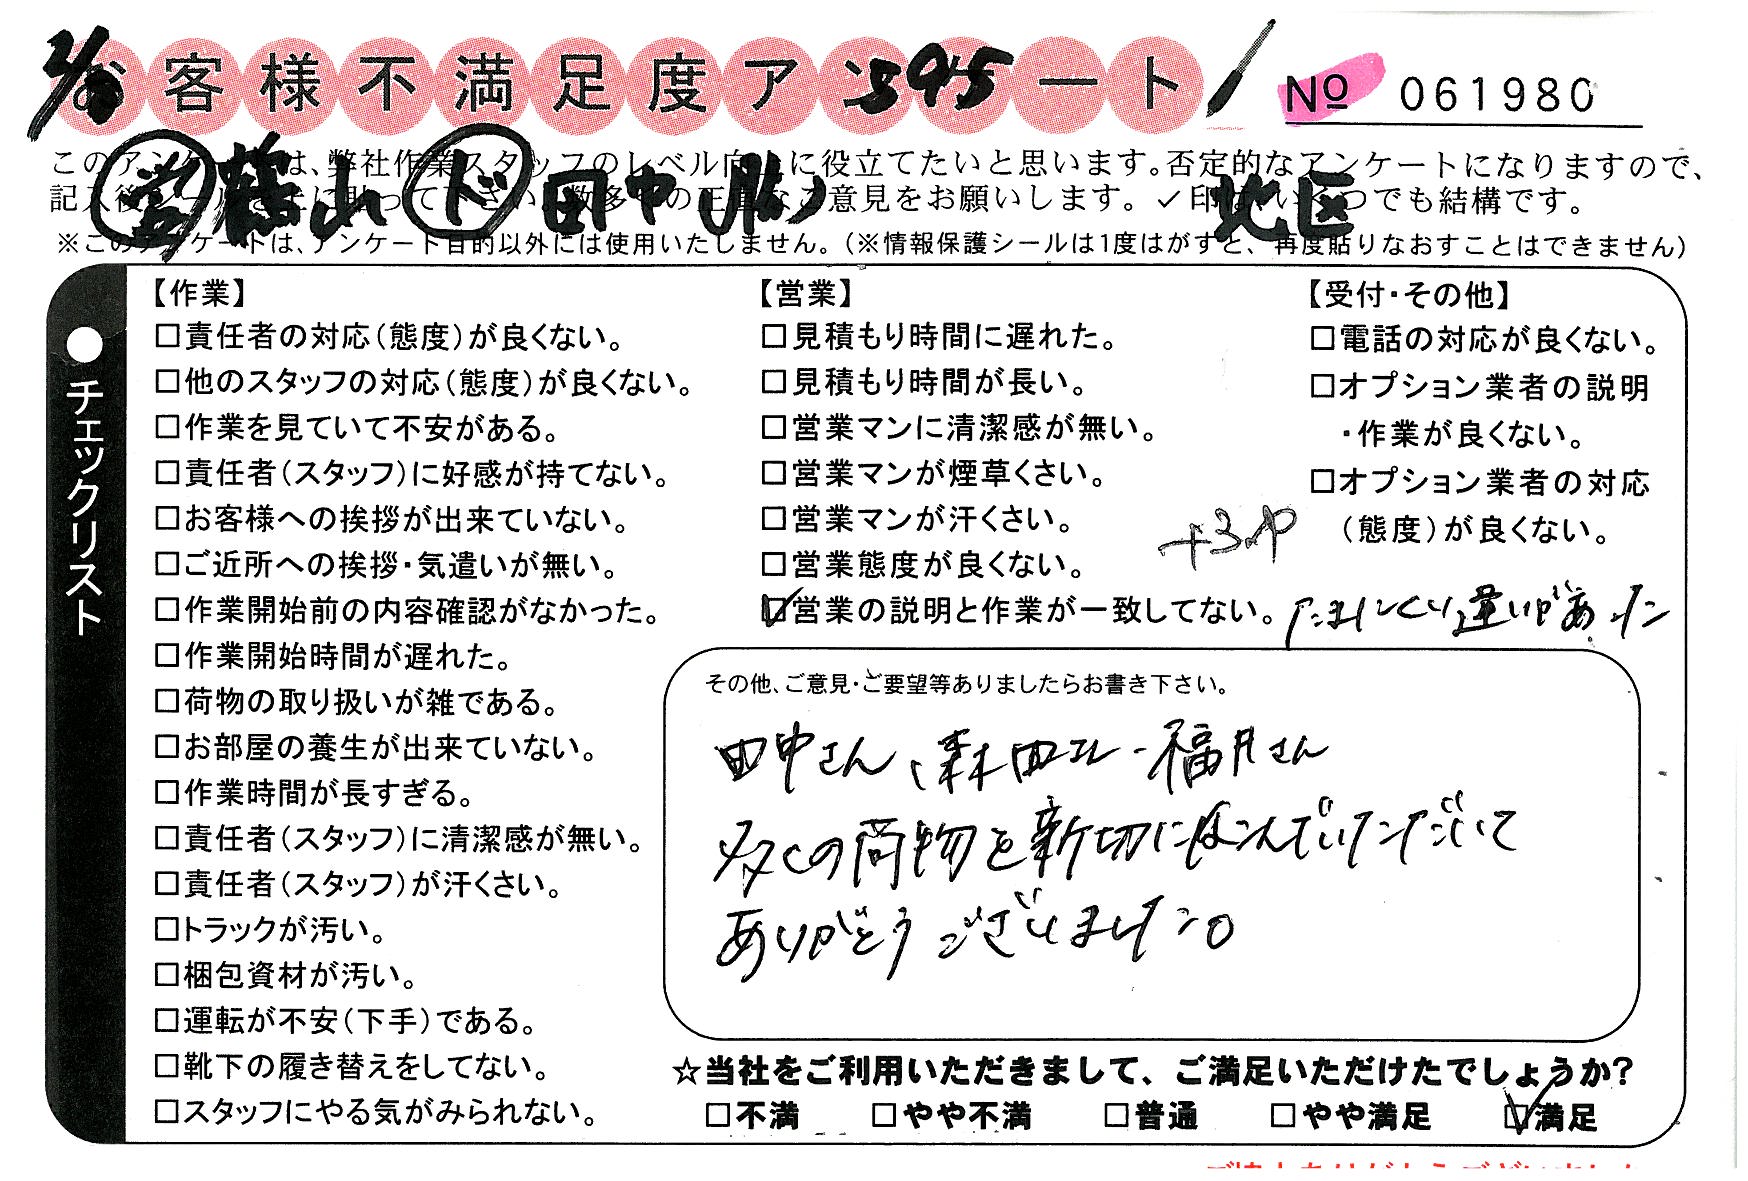 お客様不満足度アンケート
No 061980
このアンケートは、弊社作業スタッフのレベル向上に役立てたいと思います。否定的なアンケートになりますので、
記入後シールを上に貼って下さい。数多くの正直なご意見をお願いします。✓印はいくつでも結構です。
営 ド 田中 北区
※このアンケートは、アンケート目的以外には使用いたしません。(※情報保護シールは1度はがすと、再度貼りなおすことはできません)
●チェックリスト
【作業】
□責任者の対応(態度)が良くない。
□他のスタッフの対応(態度)が良くない。
□作業を見ていて不安がある。
□責任者(スタッフ)に好感が持てない。
□お客様への挨拶が出来ていない。
□ご近所への挨拶・気遣いが無い。
□作業開始前の内容確認がなかった。
□作業開始時間が遅れた。
□荷物の取り扱いが雑である。
□お部屋の養生が出来ていない。
□作業時間が長すぎる。
□責任者(スタッフ)に清潔感が無い。
□責任者(スタッフ)が汗くさい。
□トラックが汚い。
□梱包資材が汚い。
□運転が不安(下手)である。
□靴下の履き替えをしてない。
□スタッフにやる気がみられない。
【営業】
□見積もり時間に遅れた。
□見積もり時間が長い。
□営業マンに清潔感が無い。
□営業マンが煙草くさい。
□営業マンが汗くさい。
□営業態度が良くない。
☑営業の説明と作業が一致してない。 違いがあった
【受付・その他】
□電話の対応が良くない。
□オプション業者の説明
・作業が良くない。
□オプション業者の対応
(態度)が良くない。
+3.p
その他、ご意見・ご要望等ありましたらお書き下さい。
田中さん、森田さん、福月さん
多くの荷物を親切にはこんでいただいて
ありがとうございました。
☆当社をご利用いただきまして、ご満足いただけたでしょうか?
□不満 □やや不満 □普通 □やや満足 ☑満足